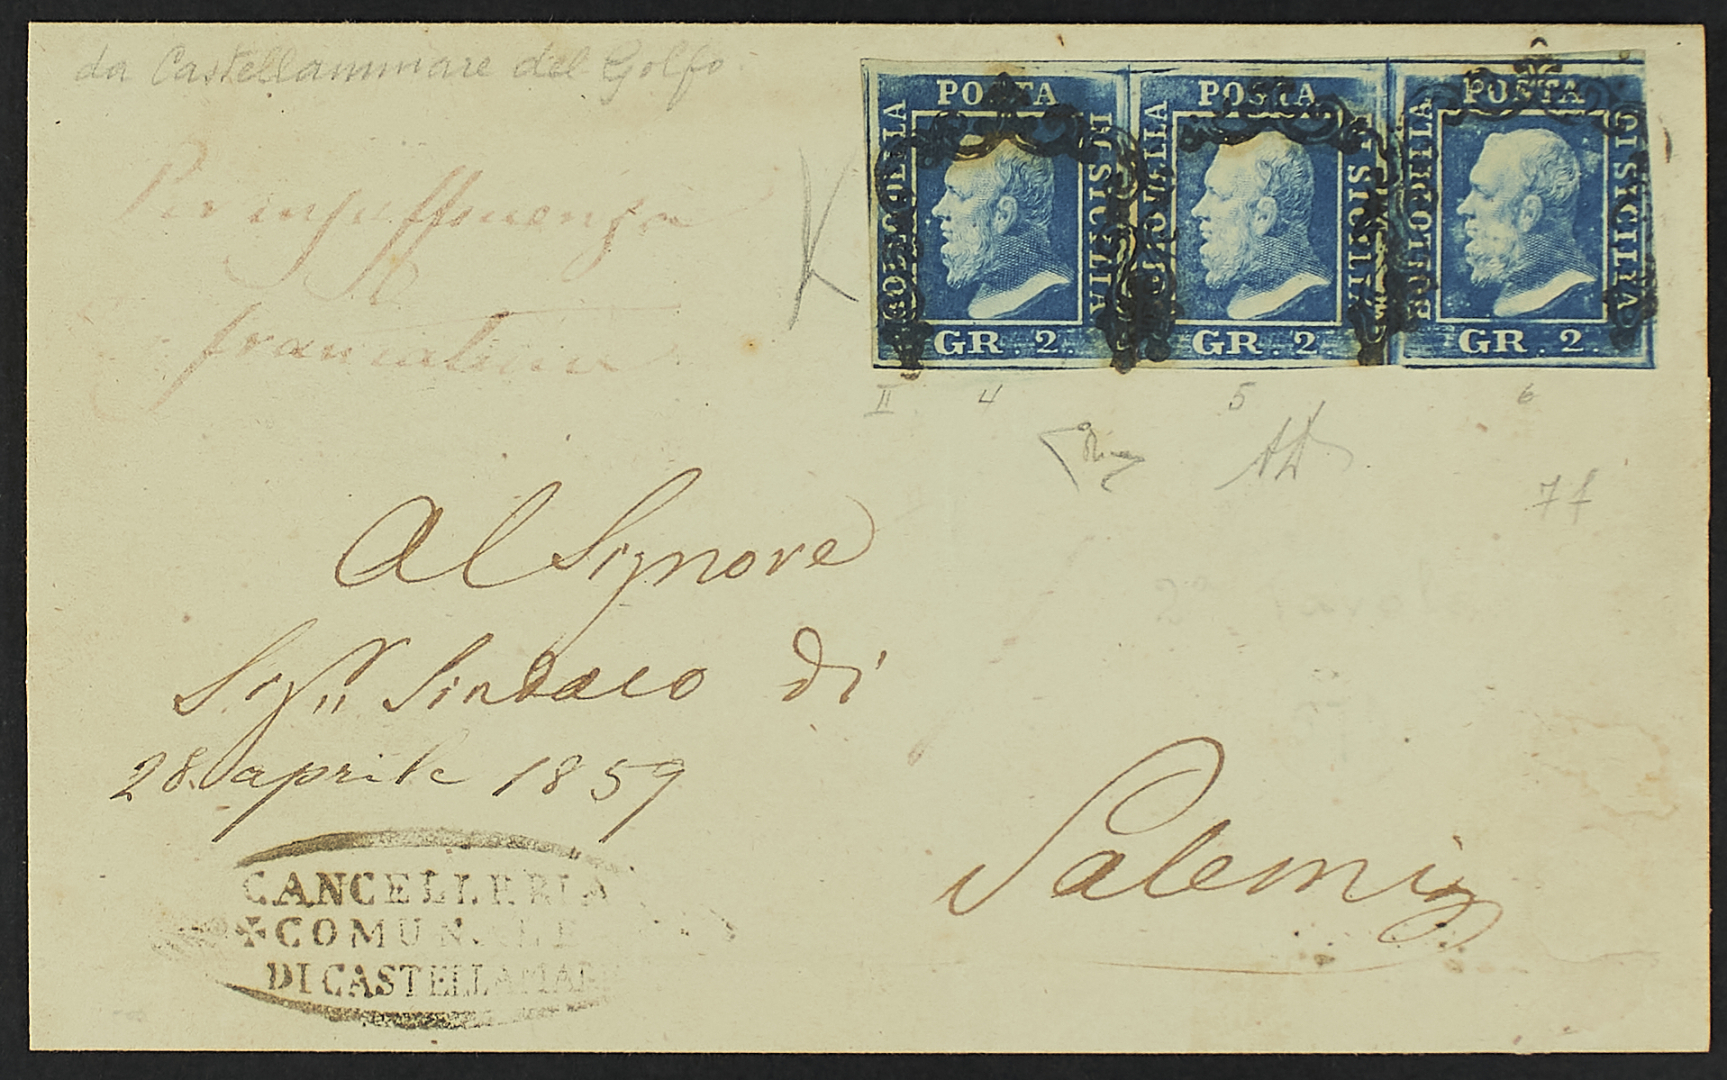 da Castellammare del Golfo
POSTA
BOLLO DELLA
DI SICILIA
GR. 2.
POSTA
BOLLO DELLA
DI SICILIA
GR. 2.
POSTA
BOLLO DELLA
DI SICILIA
GR. 2.
II 4 5 6
Per insufficienza
francatura
Al Signore
Sig.r Sindaco di
28 aprile 1859
Salemi
CANCELLERIA
COMUNALE
DI CASTELLAMARE